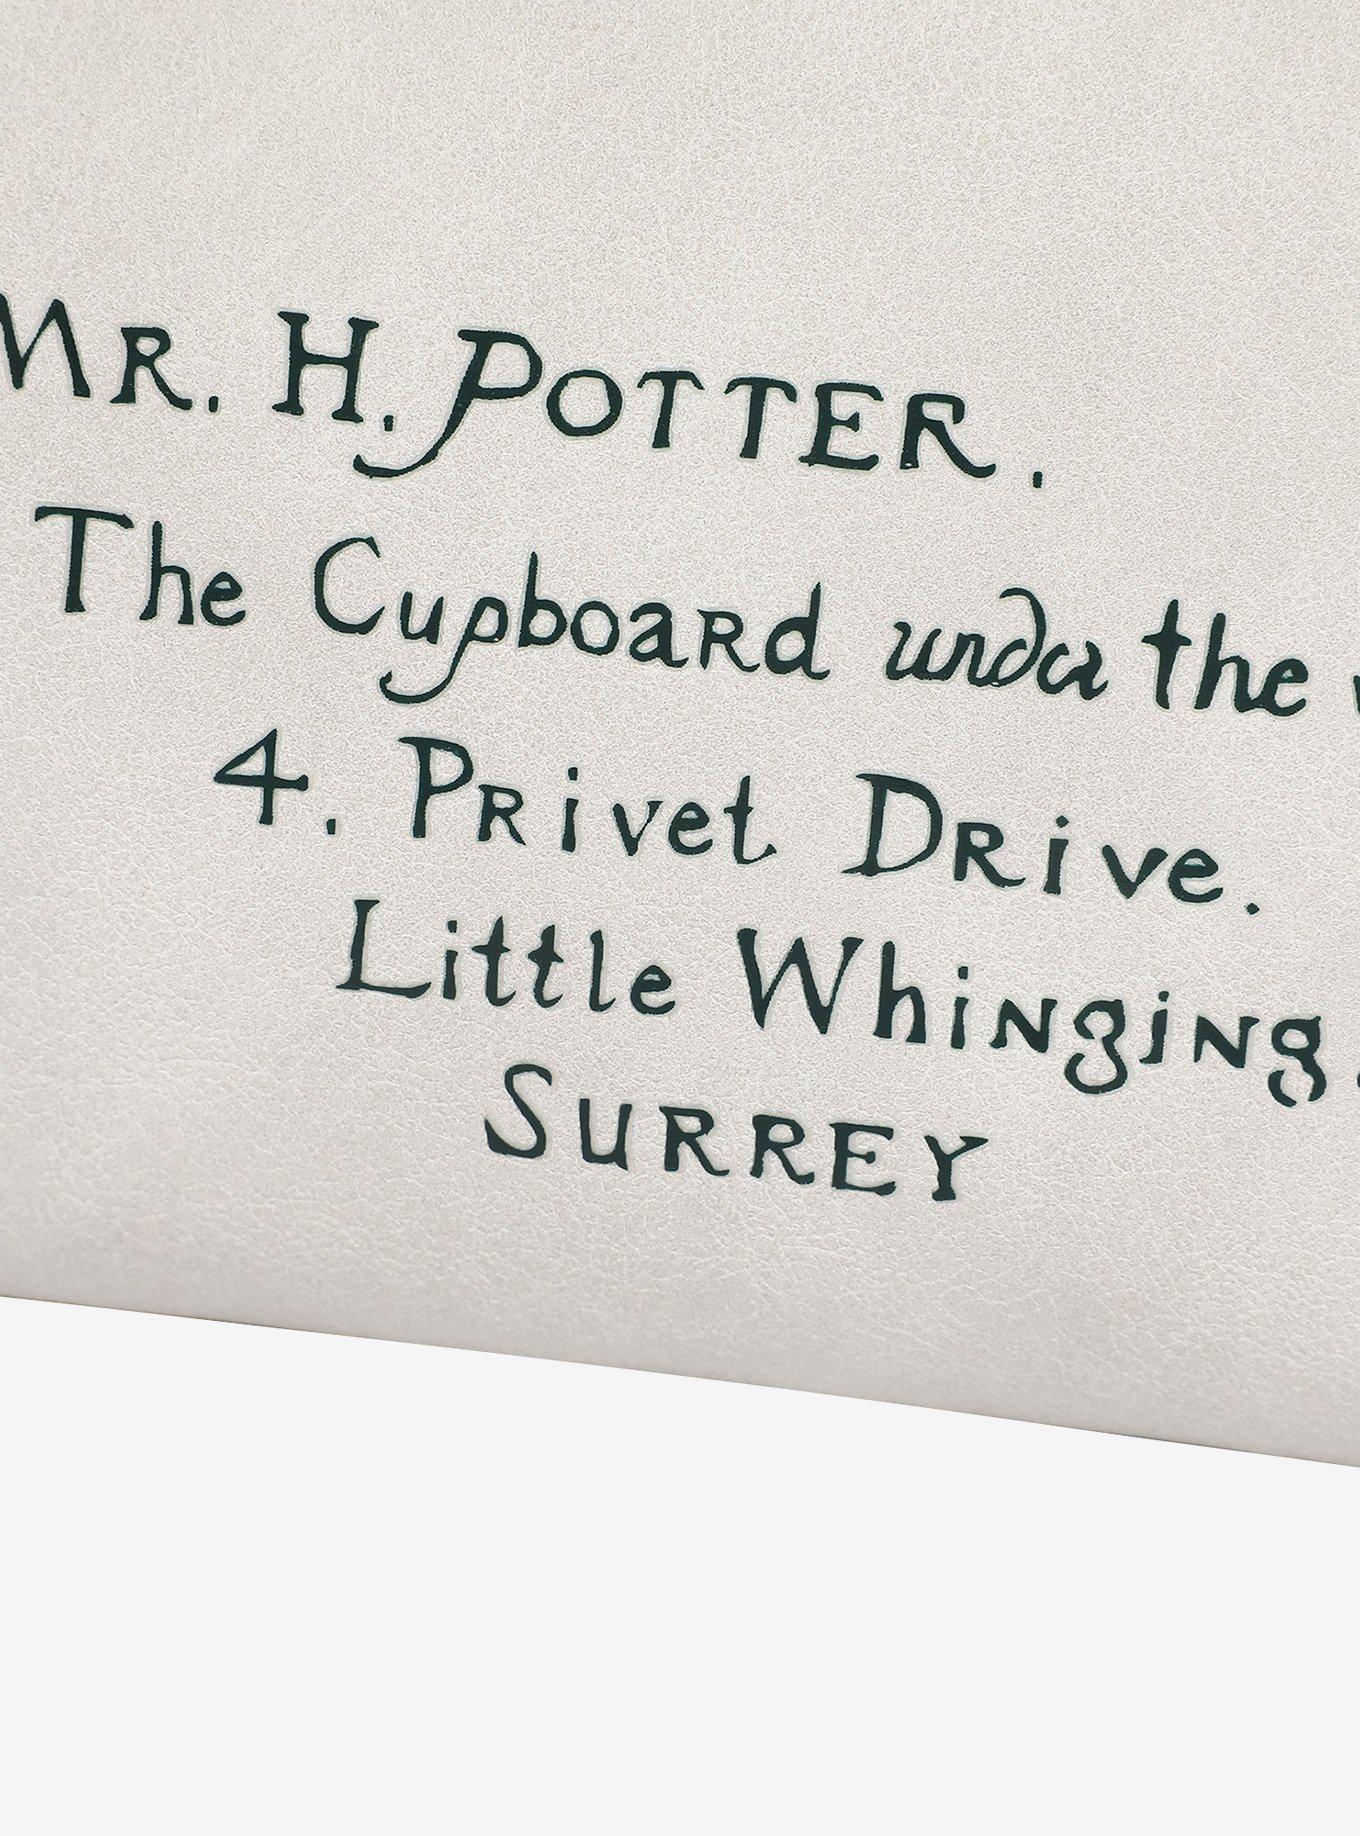 Mr. H. Potter.
The Cupboard under the
4. Privet Drive.
Little Whinging.
Surrey